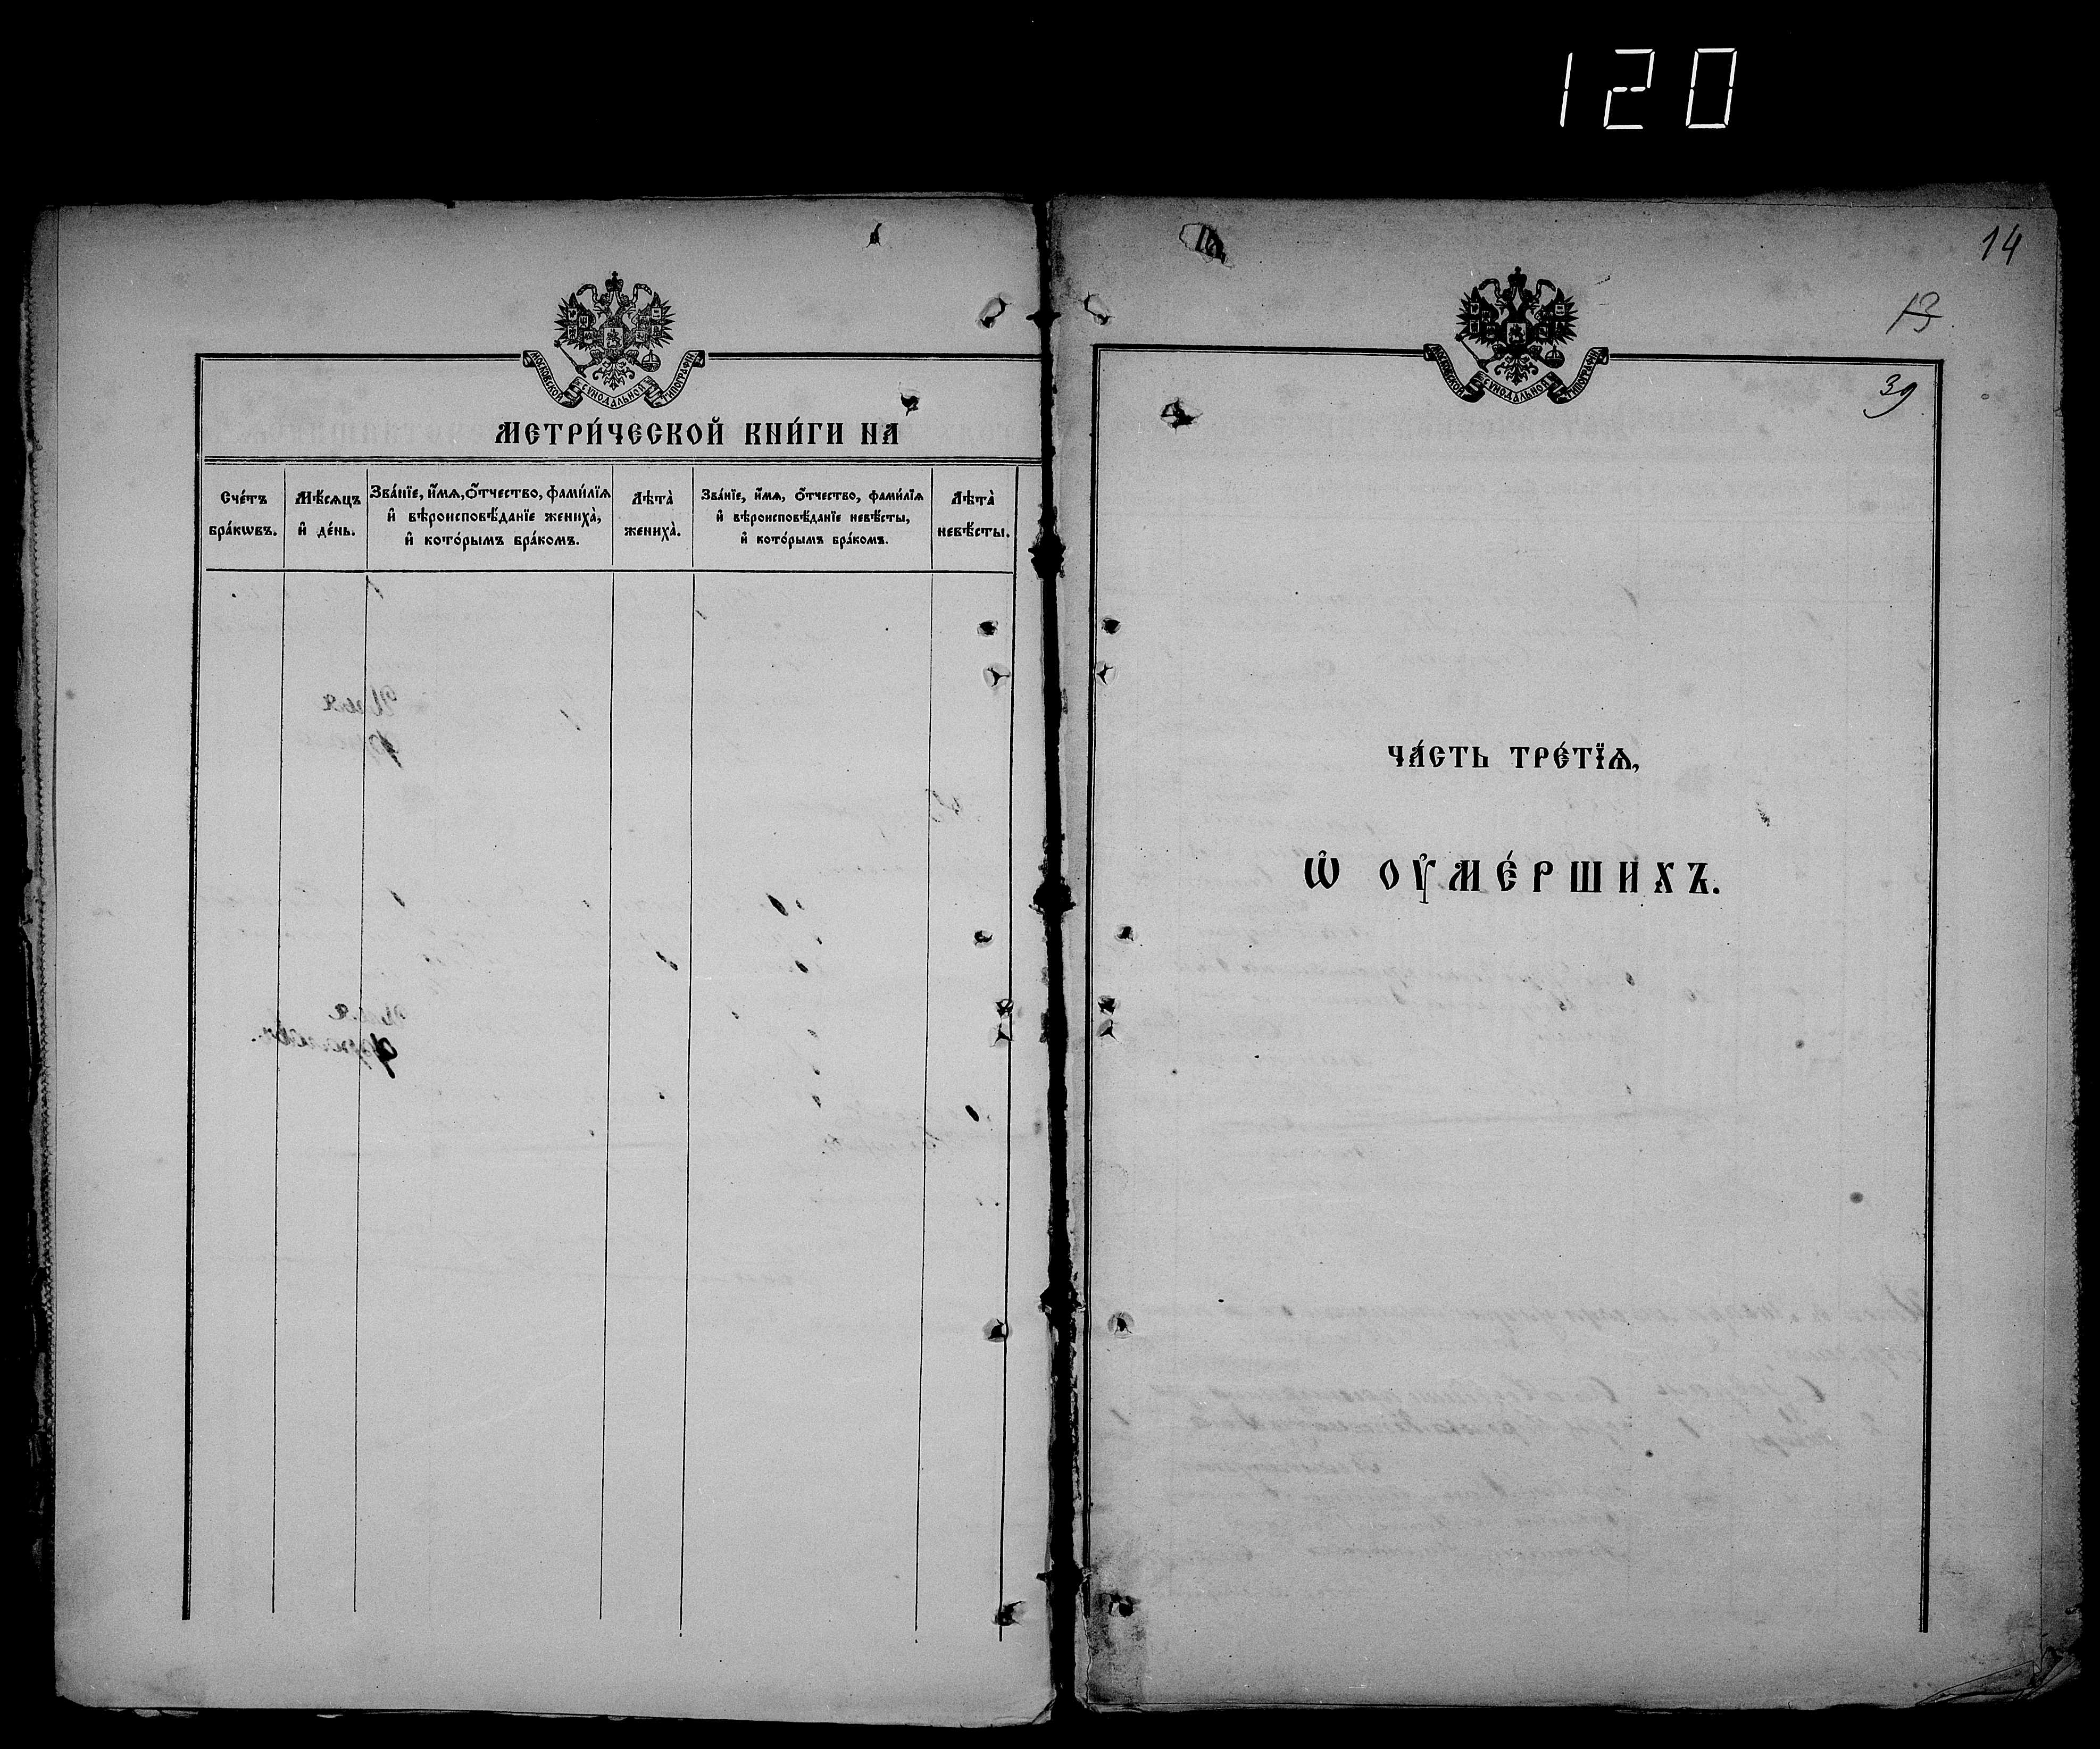 120
МОСКОВСКОЙ СУНОДАЛЬНОЙ ТИПОГРАФІИ
МЕТРИ́ЧЕСКОЙ КНИ́ГИ НА
Сче́тъ
бра́кѡвъ.
Мѣ́сѧцъ
и҆ де́нь.
Зва́нїе, и҆́мѧ, ѻ҆́тчество, фами́лїѧ
и҆ вѣроисповѣ́данїе жениха̀,
и҆ кото́рымъ бра́комъ.
Лѣта̀
жениха̀.
Зва́нїе, и҆́мѧ, ѻ҆́тчество, фами́лїѧ
и҆ вѣроисповѣ́данїе невѣ́сты,
и҆ кото́рымъ бра́комъ.
Лѣта̀
невѣ́сты.
14
13
39
МОСКОВСКОЙ СУНОДАЛЬНОЙ ТИПОГРАФІИ
ЧА́СТЬ ТРЕ́ТЇѦ,
Ѡ҆ ОУ҆МЕ́РШИХЪ.